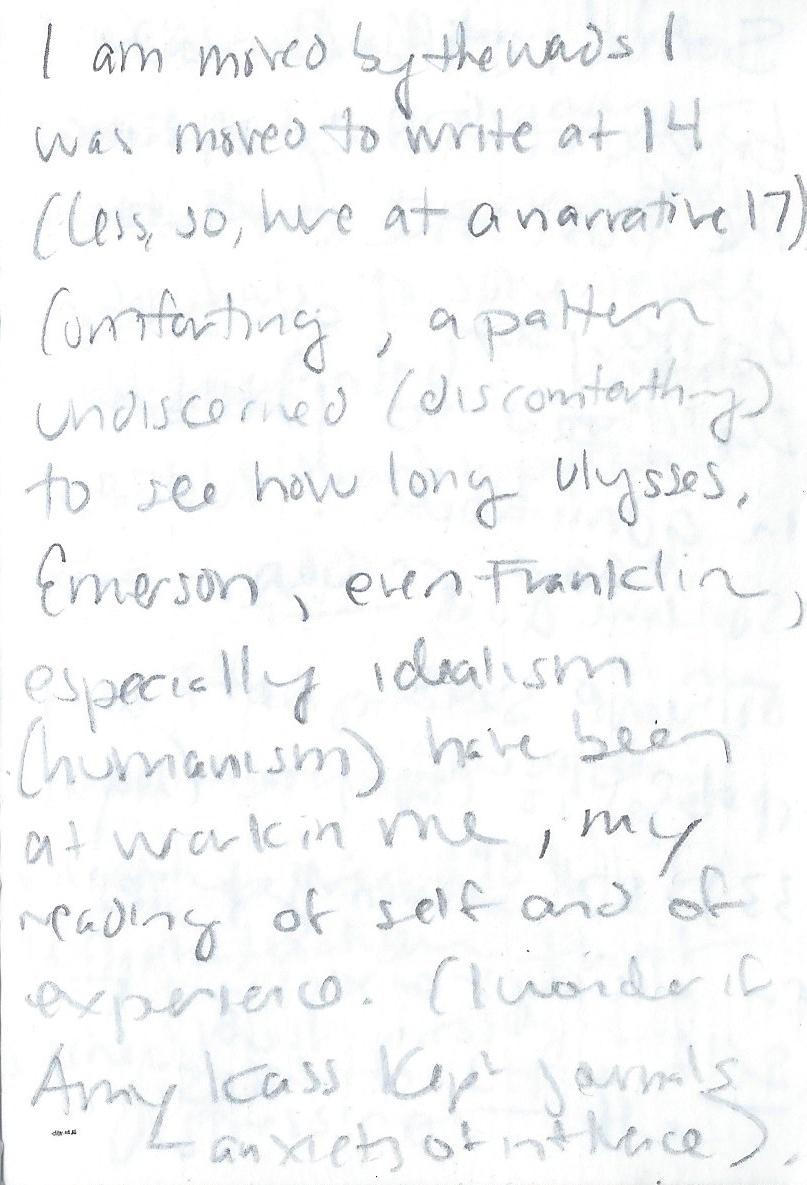 I am moved by the words I
was moved to write at 14
(less, so, here at a narrative 17)
Comforting, a pattern
undiscerned (discomforting)
to see how long Ulysses,
Emerson, even Franklin,
especially idealism
(humanism) have been
at work in me, my
reading of self and of
experience. (I wonder if
Amy Kass kept journals
anxiety of influence).